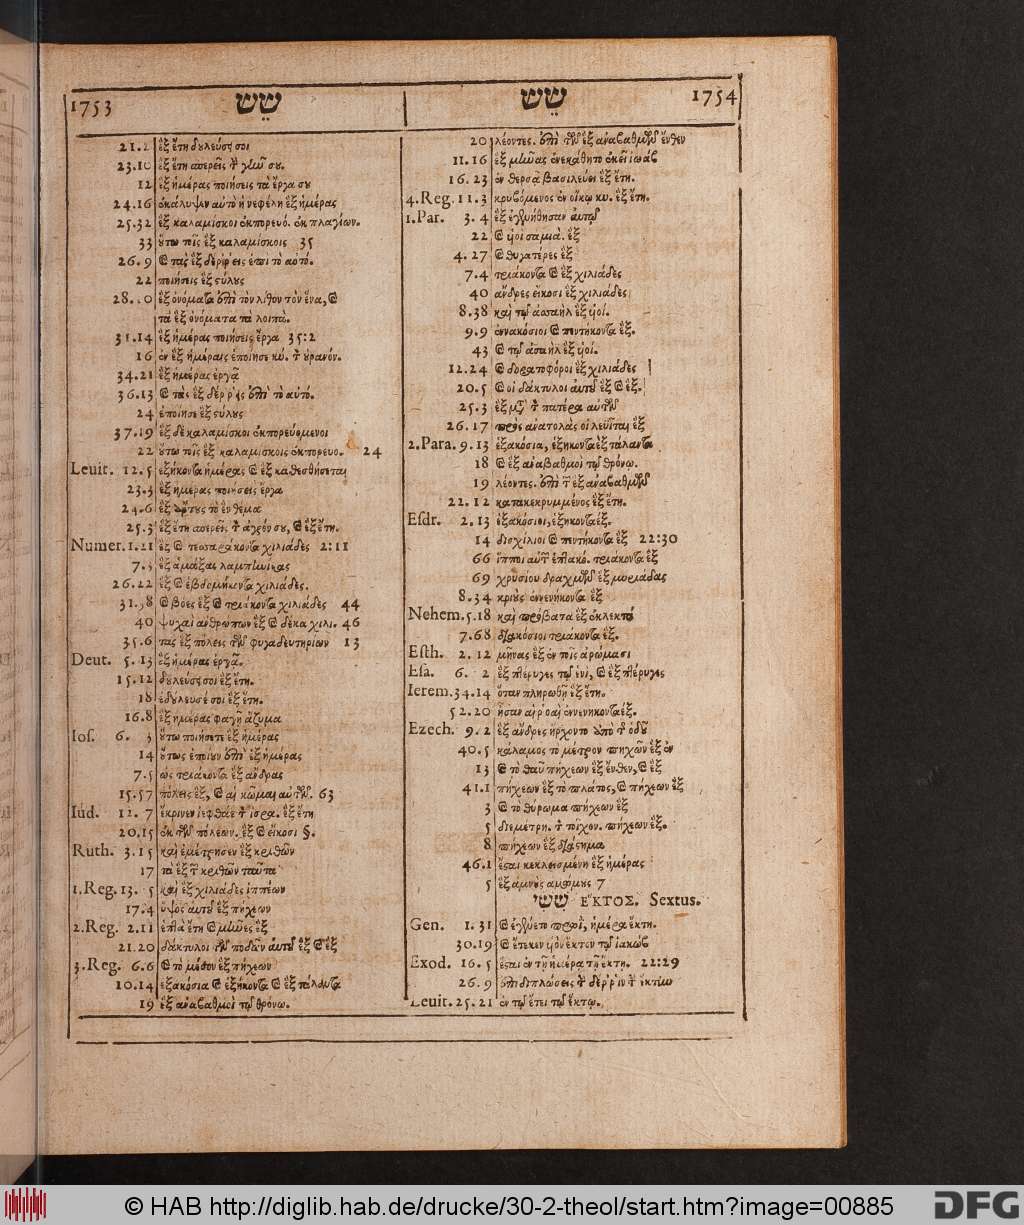 1753 שֵׁשׁ
21.2 ἓξ ἔτη δουλεύσει σοι
23.10 ἓξ ἔτη σπερεῖς τ γῆν σου.
12 ἓξ ἡμέρας ποιήσεις τὰ ἔργα σου
24.16 ἐκάλυψεν αὐτὸ ἡ νεφέλη ἓξ ἡμέρας
25.32 ἓξ καλαμίσκοι ἐκπορευό. ἐκ πλαγίων.
33 οὕτω τοῖς ἓξ καλαμίσκοις 35
26.9 καὶ τὰς ἓξ δέρρεις ἐπὶ τὸ αὐτό.
22 ποιήσεις ἓξ στύλους
28.10 ἓξ ὀνόματα ἐπὶ τὸν λίθον τὸν ἕνα, καὶ
τὰ ἓξ ὀνόματα τὰ λοιπὰ.
31.14 ἓξ ἡμέρας ποιήσεις ἔργα 35:2
16 ἐν ἓξ ἡμέραις ἐποίησε κύ. τ οὐρανόν.
34.21 ἓξ ἡμέρας ἐργᾷ
36.13 καὶ τὰς ἓξ δέρρεις ἐπὶ τὸ αὐτό.
24 ἐποίησε ἓξ στύλους
37.19 ἓξ δὲ καλαμίσκοι ἐκπορευόμενοι
22 οὕτω τοῖς ἓξ καλαμίσκοις ἐκπορευο. 24
Leuit. 12.5 ἑξήκοντα ἡμέρας καὶ ἓξ καθεσθήσεται
23.3 ἓξ ἡμέρας ποιήσεις ἔργα
24.6 ἓξ ἄρτους τὸ ἓν θεμα
25.3 ἓξ ἔτη σπερεῖς τ ἀγρόν σου, καὶ ἓξ ἔτη.
Numer. 1.21 ἓξ καὶ τεσσαράκοντα χιλιάδες 2:11
7.3 ἓξ ἁμάξας λαμπηνικας
26.22 ἓξ καὶ ἑβδομήκοντα χιλιάδες.
31.38 καὶ βόες ἓξ καὶ τριάκοντα χιλιάδες 44
40 ψυχαὶ ἀνθρώπων ἓξ καὶ δέκα χιλι. 46
35.6 τας ἓξ πόλεις τῶν φυγαδευτηρίων 13
Deut. 5.13 ἓξ ἡμέρας ἐργᾷ.
15.12 δουλεύσει σοι ἓξ ἔτη.
18 ἐδούλευσέ σοι ἓξ ἔτη.
16.8 ἓξ ἡμέρας φαγῇ ἄζυμα
Ios. 6. 3 οὕτω ποιήσετε ἓξ ἡμέρας
14 οὕτως ἐποίουν ἐπὶ ἓξ ἡμέρας
7.5 ὡς τριάκοντα ἓξ ἄνδρας
15.57 πόλεις ἓξ, καὶ αἱ κῶμαι αὐτῶν. 63
Iud. 12.7 ἔκρινεν ἰεφθάε τ ἰσρα. ἓξ ἔτη
20.15 ἐκ τῶν πόλεων. ἓξ καὶ εἴκοσι §.
Ruth. 3.15 καὶ ἐμέτρησεν ἓξ κριθῶν
17 τὰ ἓξ τ κριθῶν ταῦτα
1.Reg. 13. 5 καὶ ἓξ χιλιάδες ἱππέων
17.4 ὕψος αὐτοῦ ἓξ πήχεων
2.Reg. 2.11 ἑπτὰ ἔτη καὶ μῆνες ἓξ
21.20 δάκτυλοι τῶν ποδῶν αὐτοῦ ἓξ καὶ ἓξ
3.Reg. 6.6 καὶ τὸ μέσον ἓξ πήχεων
10.14 ἑξακόσια καὶ ἑξήκοντα καὶ ἓξ τάλαντα
19 ἓξ ἀναβαθμοὶ τῷ θρόνῳ.
שֵׁשׁ 1754
20 λέοντες. ἐπὶ τῶν ἓξ ἀναβαθμῶν ἔνθεν
11.16 ἓξ μῆνας ἐνεκάθητο ἐκεῖ ἰωάβ
16.23 ἐν θερσὰ βασιλεύει ἓξ ἔτη.
4.Reg. 11.3 κρυβόμενος ἐν οἴκῳ κυ. ἓξ ἔτη.
1.Par. 3.4 ἓξ ἐγεννήθησαν αὐτῷ
22 καὶ υἱοὶ σαμιά. ἓξ
4.27 καὶ θυγατέρες ἓξ
7.4 τριάκοντα καὶ ἓξ χιλιάδες
40 ἄνδρες εἴκοσι ἓξ χιλιάδες
8.38 καὶ τῷ ἀσαὴλ ἓξ υἱοί.
9.9 ἐννακόσιοι καὶ πεντήκοντα ἓξ.
43 καὶ τῷ ἀσαὴλ ἓξ υἱοί.
12.24 καὶ δορατοφόροι ἓξ χιλιάδες
20.5 καὶ οἱ δάκτυλοι αὐτοῦ ἓξ καὶ ἓξ.
25.3 ἓξ μετὰ τ πατέρα αὐτῶν
26.17 πρὸς ἀνατολὰς οἱ λευῖται ἓξ
2.Para. 9.13 ἑξακόσια, ἑξήκοντα ἓξ τάλαντα
18 καὶ ἓξ ἀναβαθμοὶ τῷ θρόνῳ.
19 λέοντες. ἐπὶ τ ἓξ ἀναβαθμῶν
22.12 κατακεκρυμμένος ἓξ ἔτη.
Esdr. 2.13 ἑξακόσιοι, ἑξηκονταέξ.
14 δισχίλιοι καὶ πεντήκοντα ἓξ 22:30
66 ἵπποι αὐτ ἑπτακό. τριάκοντα ἓξ
69 χρυσίου δραχμῶν ἓξ μυριάδας
8.34 κριοὺς ἐννενήκοντα ἓξ
Nehem. 5.18 καὶ πρόβατα ἓξ ἐκλεκτὰ
7.68 διακόσιοι τριάκοντα ἓξ.
Esth. 2.12 μῆνας ἓξ ἐν τοῖς ἀρώμασι
Esa. 6. 2 ἓξ πτέρυγες τῷ ἑνὶ, καὶ ἓξ πτέρυγες
Ierem. 34.14 ὅταν πληρωθῇ ἓξ ἔτη.
52.20 ἦσαν αἱ ῥοαὶ ἐννενηκονταέξ.
Ezech. 9.2 ἓξ ἄνδρες ἤρχοντο ἀπὸ τ ὁδοῦ
40.5 κάλαμος τὸ μέτρον πηχῶν ἓξ ἐν
13 καὶ τὸ θαῦ πήχεων ἓξ ἔνθεν, καὶ ἓξ
41.1 πήχεων ἓξ τὸ πλάτος, καὶ πήχεων ἓξ
3 καὶ τὸ θύρωμα πήχεων ἓξ
5 διεμέτρη. τ τοῖχον. πήχεων ἓξ.
8 πήχεων ἓξ διάστημα
46.1 ἔσται κεκλεισμένη ἓξ ἡμέρας
5 ἓξ ἀμνοὺς ἀμώμους 7
שִׁשִּׁי ΕΚΤΟΣ. Sextus.
Gen. 1.31 καὶ ἐγένετο πρωῒ, ἡμέρα ἕκτη.
30.19 καὶ ἔτεκεν υἱὸν ἕκτον τῷ ἰακώβ
Exod. 16.5 ἔσται ἐν τῇ ἡμέρᾳ τῇ ἕκτῃ. 22:29
26.9 ἐπιδιπλώσεις τ δέρριν τ ἕκτην
Leuit. 25.21 ἐν τῷ ἔτει τῷ ἕκτῳ.
© HAB http://diglib.hab.de/drucke/30-2-theol/start.htm?image=00885
DFG